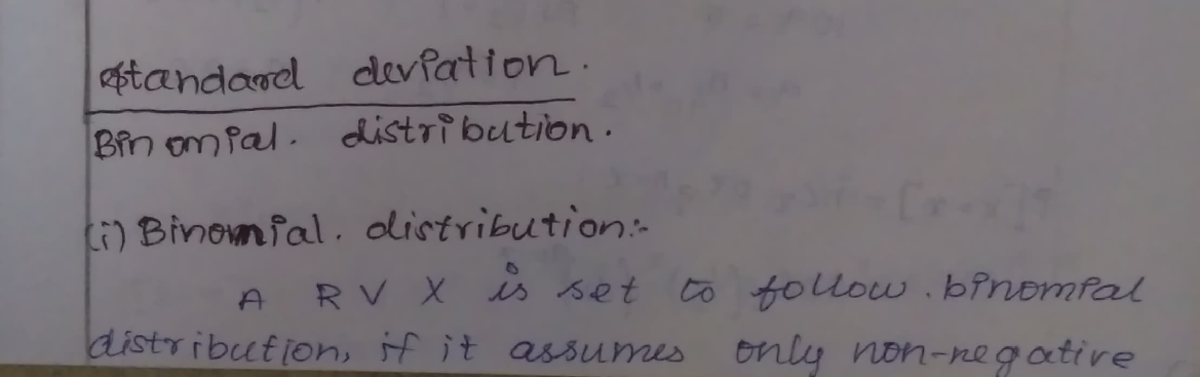 standard deviation.
Binomial. distribution.
(i) Binomial. distribution:-
A RV X is set to follow. binomial
distribution, if it assumes only non-negative